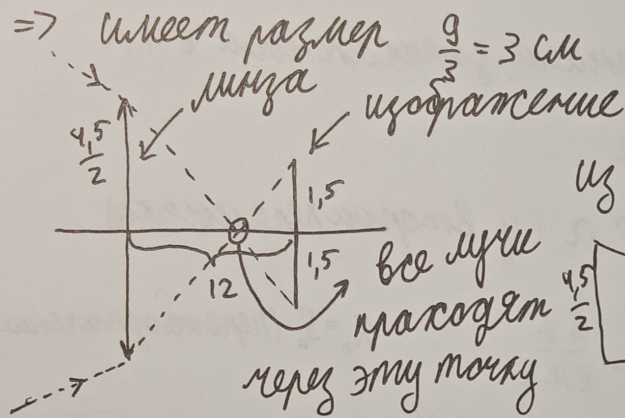 => имеет размер 9/3 = 3 см
линза
изображение
4,5/2
1,5
из
1,5
12
все лучи
проходят
4,5/2
через эту точку